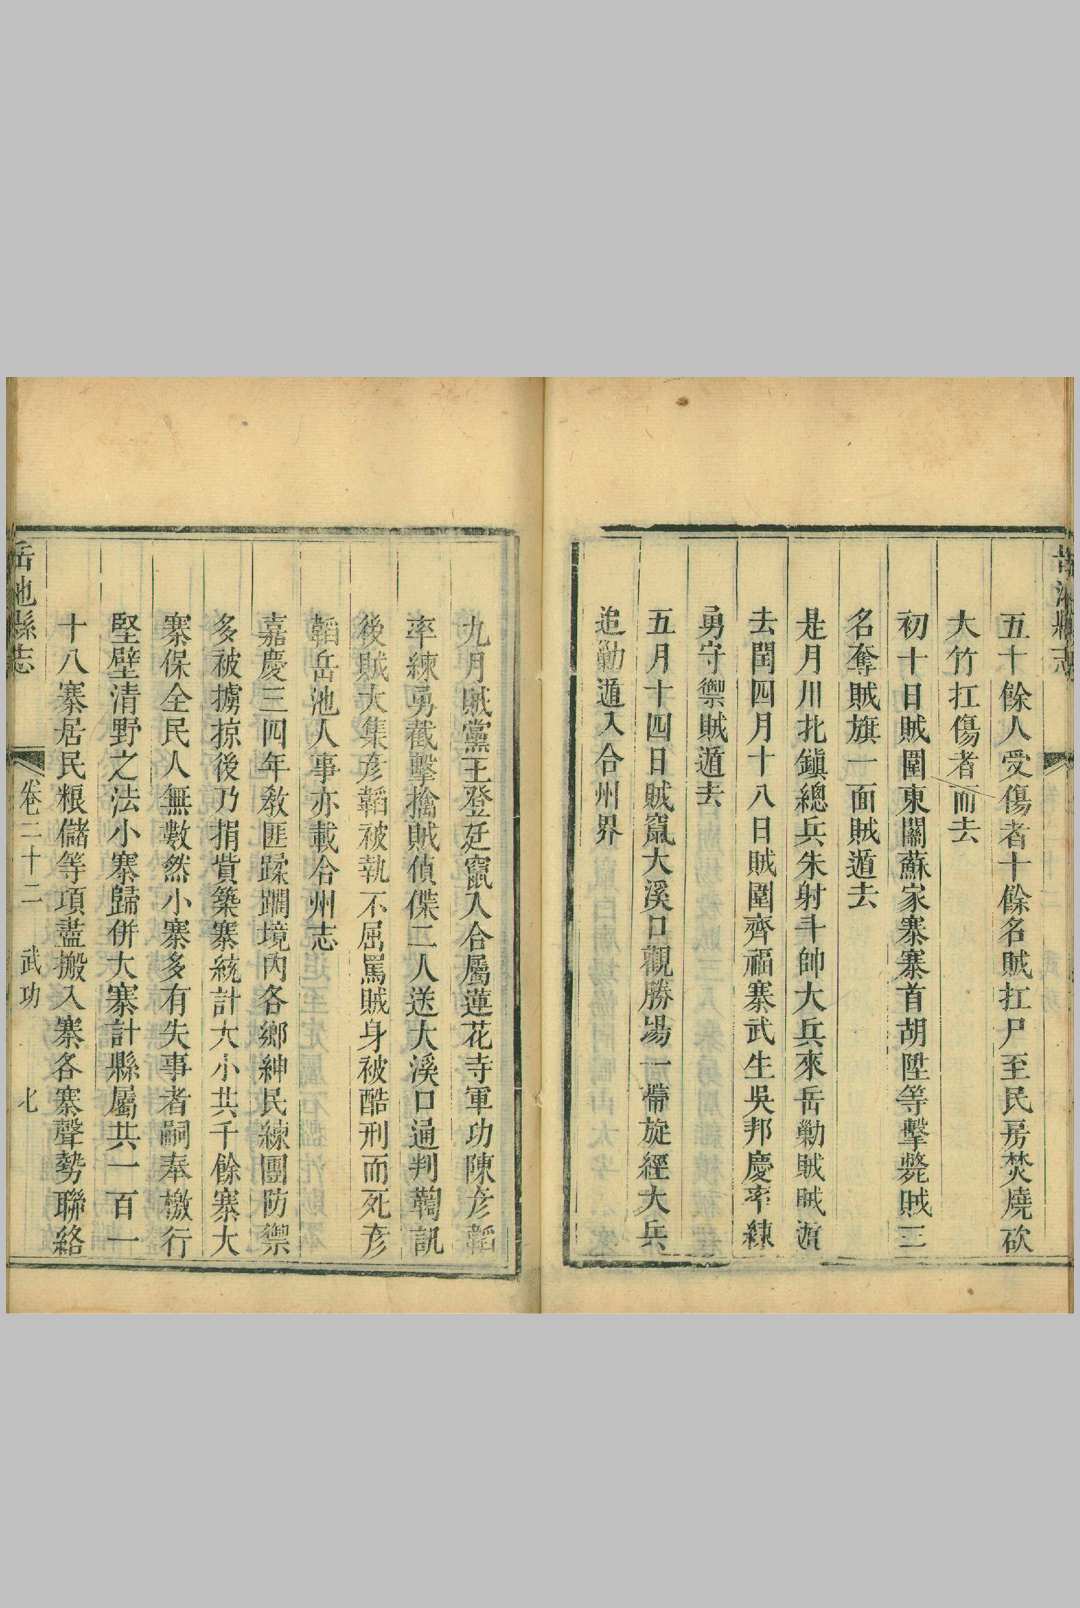 五十餘人受傷者十餘名賊扛尸至民房焚燒砍
大竹扛傷者而去
初十日賊圍東關蘇家寨寨首胡陞等擊斃賊三
名奪賊旗一面賊遁去
是月川北鎮總兵朱射斗帥大兵來岳勦賊賊遁
去閏四月十八日賊圍齊福寨武生吳邦慶率練
勇守禦賊遁去
五月十四日賊竄大溪口觀勝場一帶旋經大兵
追勦遁入合州界
九月賊黨王登廷竄入合屬蓮花寺軍功陳彥韜
率練勇截擊擒賊偵傑二人送大溪口通判鞫訊
後賊大集彥韜被執不屈罵賊身被酷刑而死彥
韜岳池人事亦載合州志
嘉慶三四年敎匪蹂躙境內各鄉紳民練團防禦
多被擄掠後乃捐貲築寨統計大小共千餘寨大
寨保全民人無數然小寨多有失事者嗣奉檄行
堅壁清野之法小寨歸併大寨計縣屬共一百一
十八寨居民粮儲等項盡搬入寨各寨聲勢聯絡
岳池縣志
卷二十二 武功